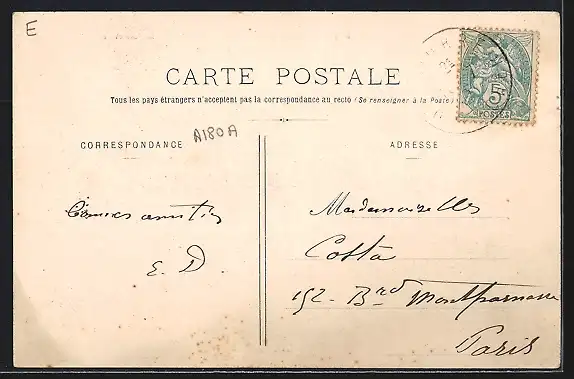 E
CARTE POSTALE
Tous les pays étrangers n'acceptent pas la correspondance au recto (Se renseigner à la Poste)
5
POSTES
CORRESPONDANCE
A180A
ADRESSE
amitiés
E. D
Mesdemoiselles
Costa
152 - Brd Montparnasse
Paris